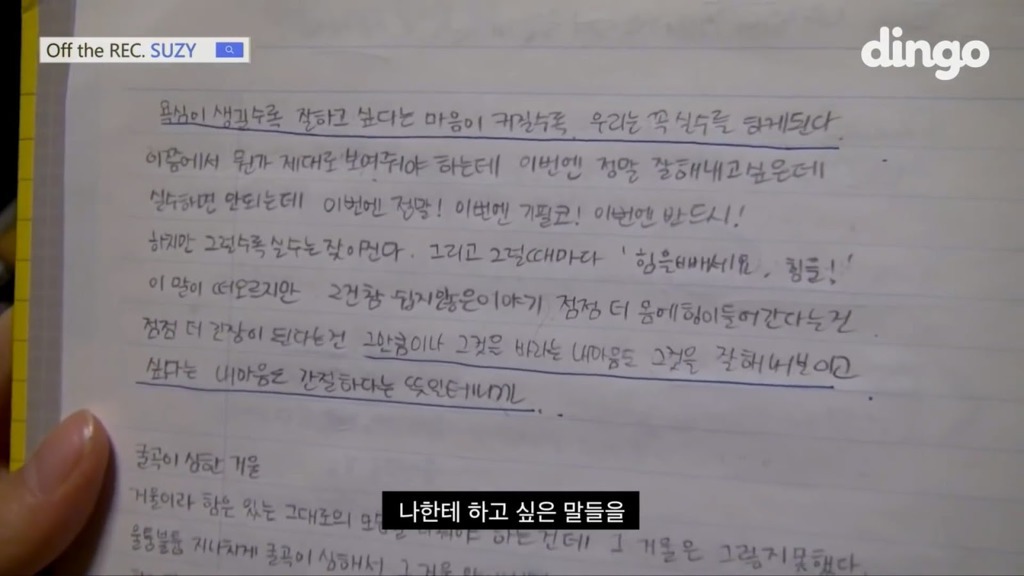 Off the REC. SUZY
dingo
욕심이 생길수록 잘하고 싶다는 마음이 커질수록, 우리는 꼭 실수를 하게된다.
이쯤에서 뭔가 제대로 보여줘야 하는데 이번엔 정말 잘해내고싶은데
실수하면 안되는데 이번엔 정말! 이번엔 기필코! 이번엔 반드시!
하지만 그럴수록 실수는 잦아진다. 그리고 그럴때마다 '힘을빼세요, 힘들!'
이 말이 떠오르지만 그건참 쉽지않은이야기 점점 더 몸에힘이들어간다는건
점점 더 긴장이 된다는건 그만큼이나 그것을 바라는 내마음도 그것을 잘해내보이고
싶다는 내마음도 간절하다는 뜻일테니까...
굴곡이 심한 거울
거울이라 함은 있는 그대로의 하는건데! 그 거울은 그렇지못했다.
울퉁불퉁 지나치게 굴곡이 심해서 그 거울
나한테 하고 싶은 말들을